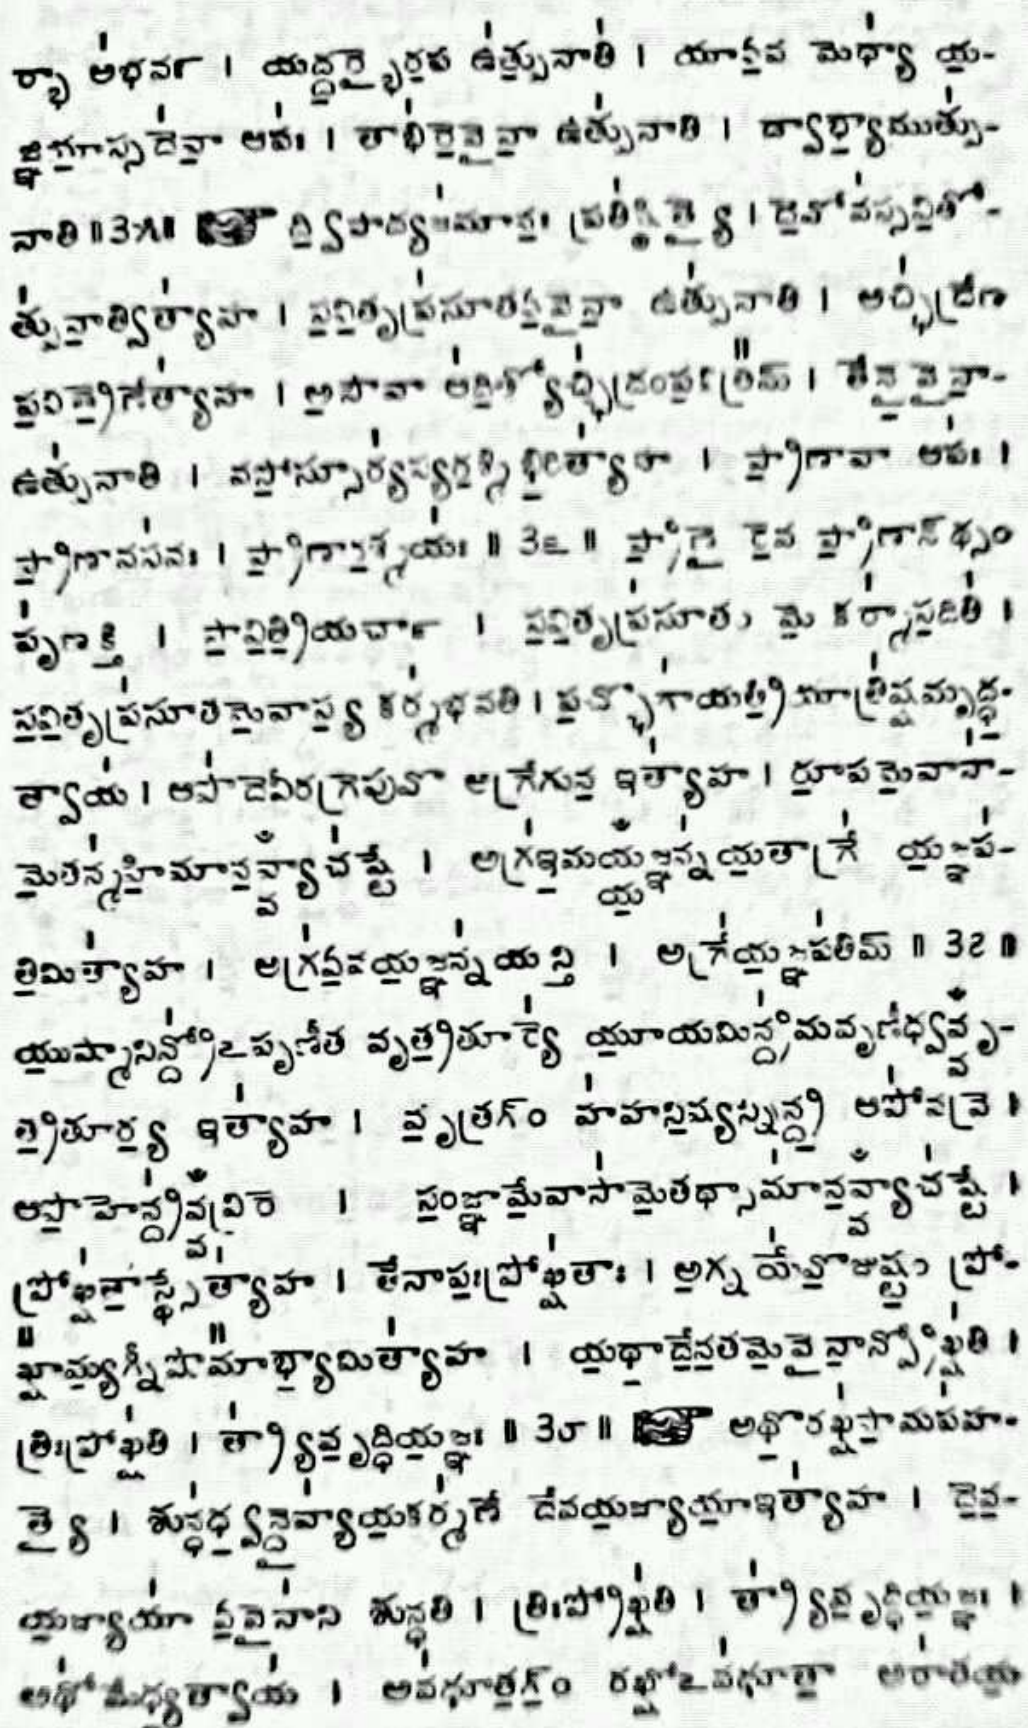 ర్భా అభవన్ । యద్దర్భైరప ఉత్పునాతి । యా ఏవ మేధ్యా య-
జ్ఞియాస్సదేవా ఆపః । తాభిరేవైనా ఉత్పునాతి । ద్వాభ్యాముత్పు-
నాతి ॥ ౩౫ ॥ ద్విపాద్యజమానః ప్రతిష్ఠిత్యై । దేవోవస్సవితో-
త్పునాత్విత్యాహ । సవితృప్రసూతఏవైనా ఉత్పునాతి । అచ్ఛిద్రేణ
పవిత్రేణేత్యాహ । అసౌవా ఆదిత్యోచ్ఛిద్రంపవిత్రమ్ । తేనైవైనా-
ఉత్పునాతి । వసోస్సూర్యస్యరశ్మిభిరిత్యాహ । ప్రాణావా ఆపః ।
ప్రాణావసవః । ప్రాణారశ్మయః ॥ ౩౬ ॥ ప్రాణైరేవ ప్రాణాన్థ్సం
పృణక్తి । సావిత్రియర్చా । సవితృప్రసూతం మే కర్మాసదితి ।
సవితృప్రసూతమేవాస్య కర్మభవతి । పచ్ఛోగాయత్రియాత్రిష్షమృద్ధ-
త్వాయ । ఆపోదేవీరగ్రేపువో అగ్రేగువ ఇత్యాహ । రూపమేవాసా-
మేతన్మహిమానవ్యాఀచష్టే । అగ్రఇమయఀజ్ఞన్నయతాగ్రే యజ్ఞప-
తిమిత్యాహ । అగ్రఏవయజ్ఞన్నయన్తి । అగ్రేయజ్ఞపతిమ్ ॥ ౩౭ ॥
యుష్మానిన్ద్రోఽవృణీత వృత్రతూర్యే యూయమిన్ద్రమవృణీధ్వవృఀ-
త్రతూర్య ఇత్యాహ । వృత్రగ్ం హహనిష్యన్నిన్ద్ర ఆపోవవ్రే ।
ఆపోహేన్ద్రవఀవ్రిరే । సంజ్ఞామేవాసామేతథ్సామానవ్యాఀచష్టే ।
ప్రోక్షితాస్స్థేత్యాహ । తేనాపఃప్రోక్షితాః । అగ్నయేవోజుష్టం ప్రో-
క్షామ్యగ్నీషోమాభ్యామిత్యాహ । యథాదేవతమేవైనాన్ప్రోక్షతి ।
త్రిఃప్రోక్షతి । త్ర్యావృద్ధియజ్ఞః ॥ ౩౮ ॥ అథోరక్షసామపహ-
త్యై । శున్ధధ్వన్దైవ్యాయకర్మణే దేవయజ్యాయాఇత్యాహ । దేవ-
యజ్యాయా ఏవైనాని శున్ధతి । త్రిఃప్రోక్షతి । త్ర్యావృద్ధియజ్ఞః ।
అథోమేధ్యత్వాయ । అవధూతగ్ం రక్షోఽవధూతా అరాతయ